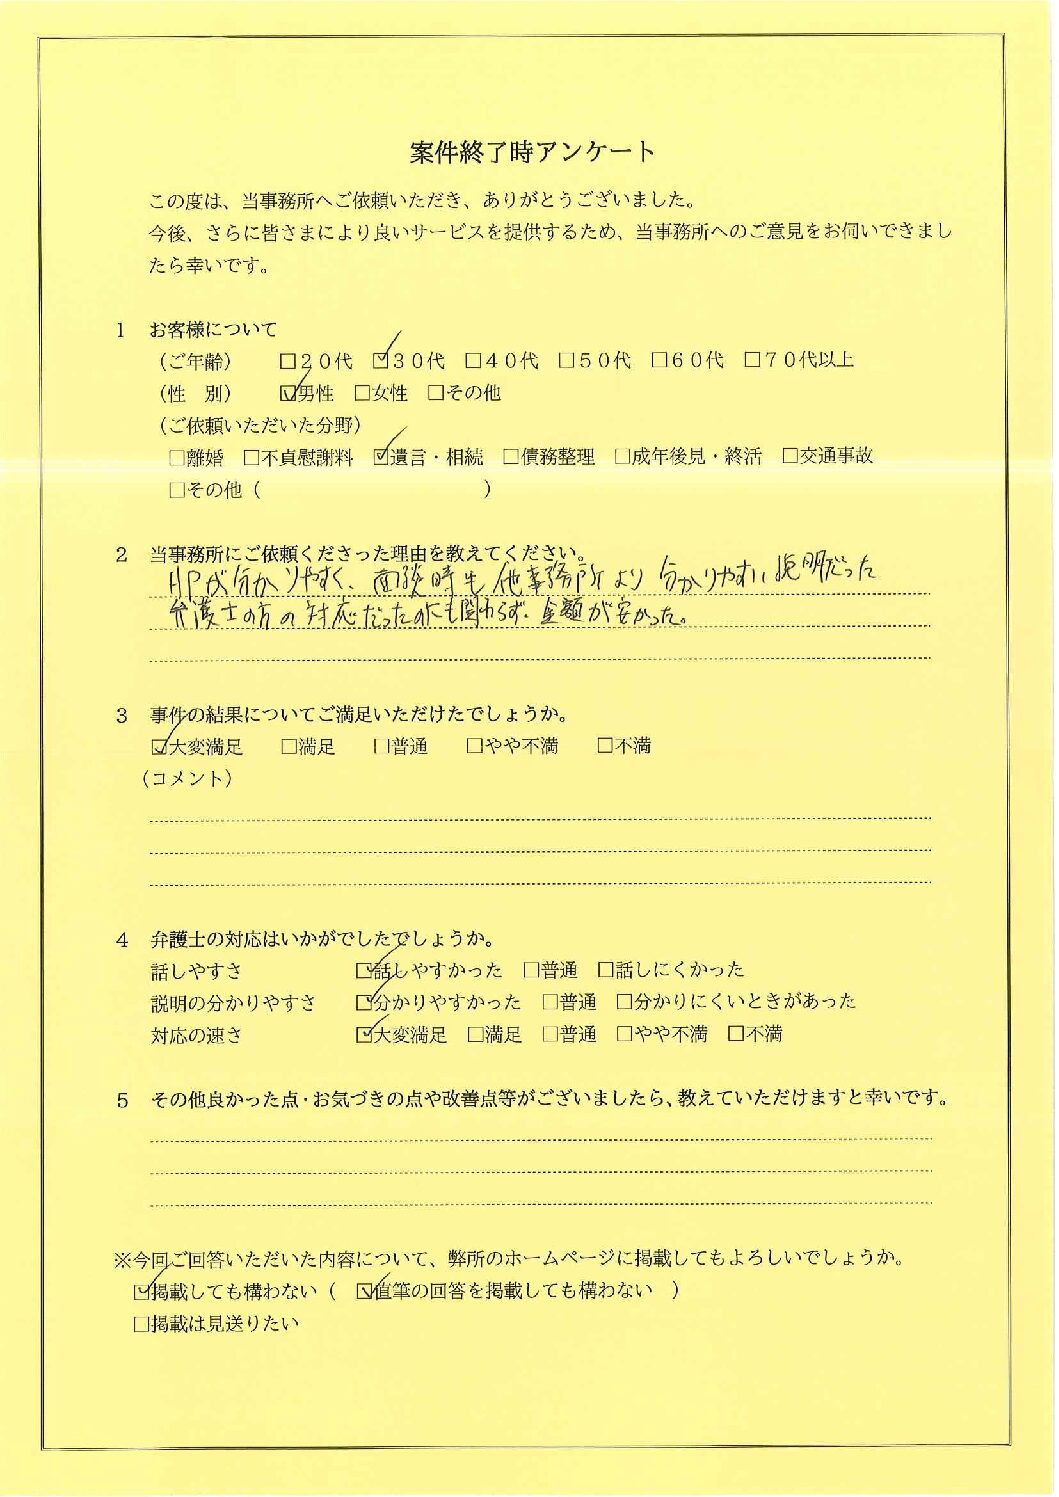 案件終了時アンケート
この度は、当事務所へご依頼いただき、ありがとうございました。
今後、さらに皆さまにより良いサービスを提供するため、当事務所へのご意見をお伺いできまし
たら幸いです。
1 お客様について
（ご年齢） □２０代 ☑３０代 □４０代 □５０代 □６０代 □７０代以上
（性 別） ☑男性 □女性 □その他
（ご依頼いただいた分野）
□離婚 □不貞慰謝料 ☑遺言・相続 □債務整理 □成年後見・終活 □交通事故
□その他（ ）
2 当事務所にご依頼くださった理由を教えてください。
HPが分かりやすく、面談時も他事務所より分かりやすい説明だった
弁護士の方の対応だったのにも関わらず、金額が安かった。
3 事件の結果についてご満足いただけたでしょうか。
☑大変満足 □満足 □普通 □やや不満 □不満
（コメント）
4 弁護士の対応はいかがでしたでしょうか。
話しやすさ ☑話しやすかった □普通 □話しにくかった
説明の分かりやすさ ☑分かりやすかった □普通 □分かりにくいときがあった
対応の速さ ☑大変満足 □満足 □普通 □やや不満 □不満
5 その他良かった点・お気づきの点や改善点等がございましたら、教えていただけますと幸いです。
※今回ご回答いただいた内容について、弊所のホームページに掲載してもよろしいでしょうか。
☑掲載しても構わない（ ☑直筆の回答を掲載しても構わない ）
□掲載は見送りたい